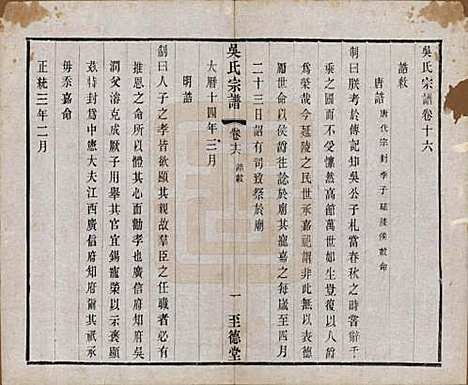 吳氏宗譜卷十六
誥敕
唐誥 唐代宗封季子延陵侯敕命
制曰朕考於傳記知吳公子札當春秋之時辭千
乘之國而不受慄然高館萬世如生覺復以典
為榮哉今延陵之民世承嘉祀謂非此無以表德
厲世命以侯爵往諗於廟其寵嘉之每歲至四月
二十三日詔有司致祭於廟
大曆十四年三月
明誥
制曰人子之孝皆欲顯其親故羣臣之任職者必有
推恩之命所以體其心而勸孝也廣信府知府吳
潤父濬克成厥子用舉其官宜錫寵榮以示褒顯
茲特封為中憲大夫江西廣信府知府爾其祇承
毋忝嘉命
正統三年二月
吳氏宗譜
卷十六 誥敕
一
至德堂